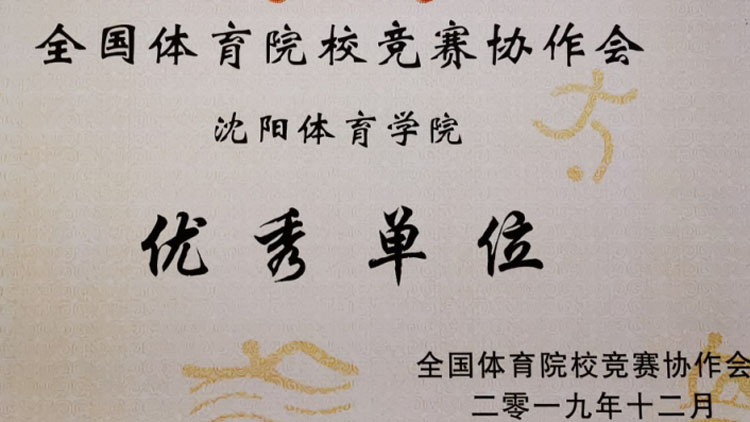 全国体育院校竞赛协作会
沈阳体育学院
优秀单位
全国体育院校竞赛协作会
二零一九年十二月